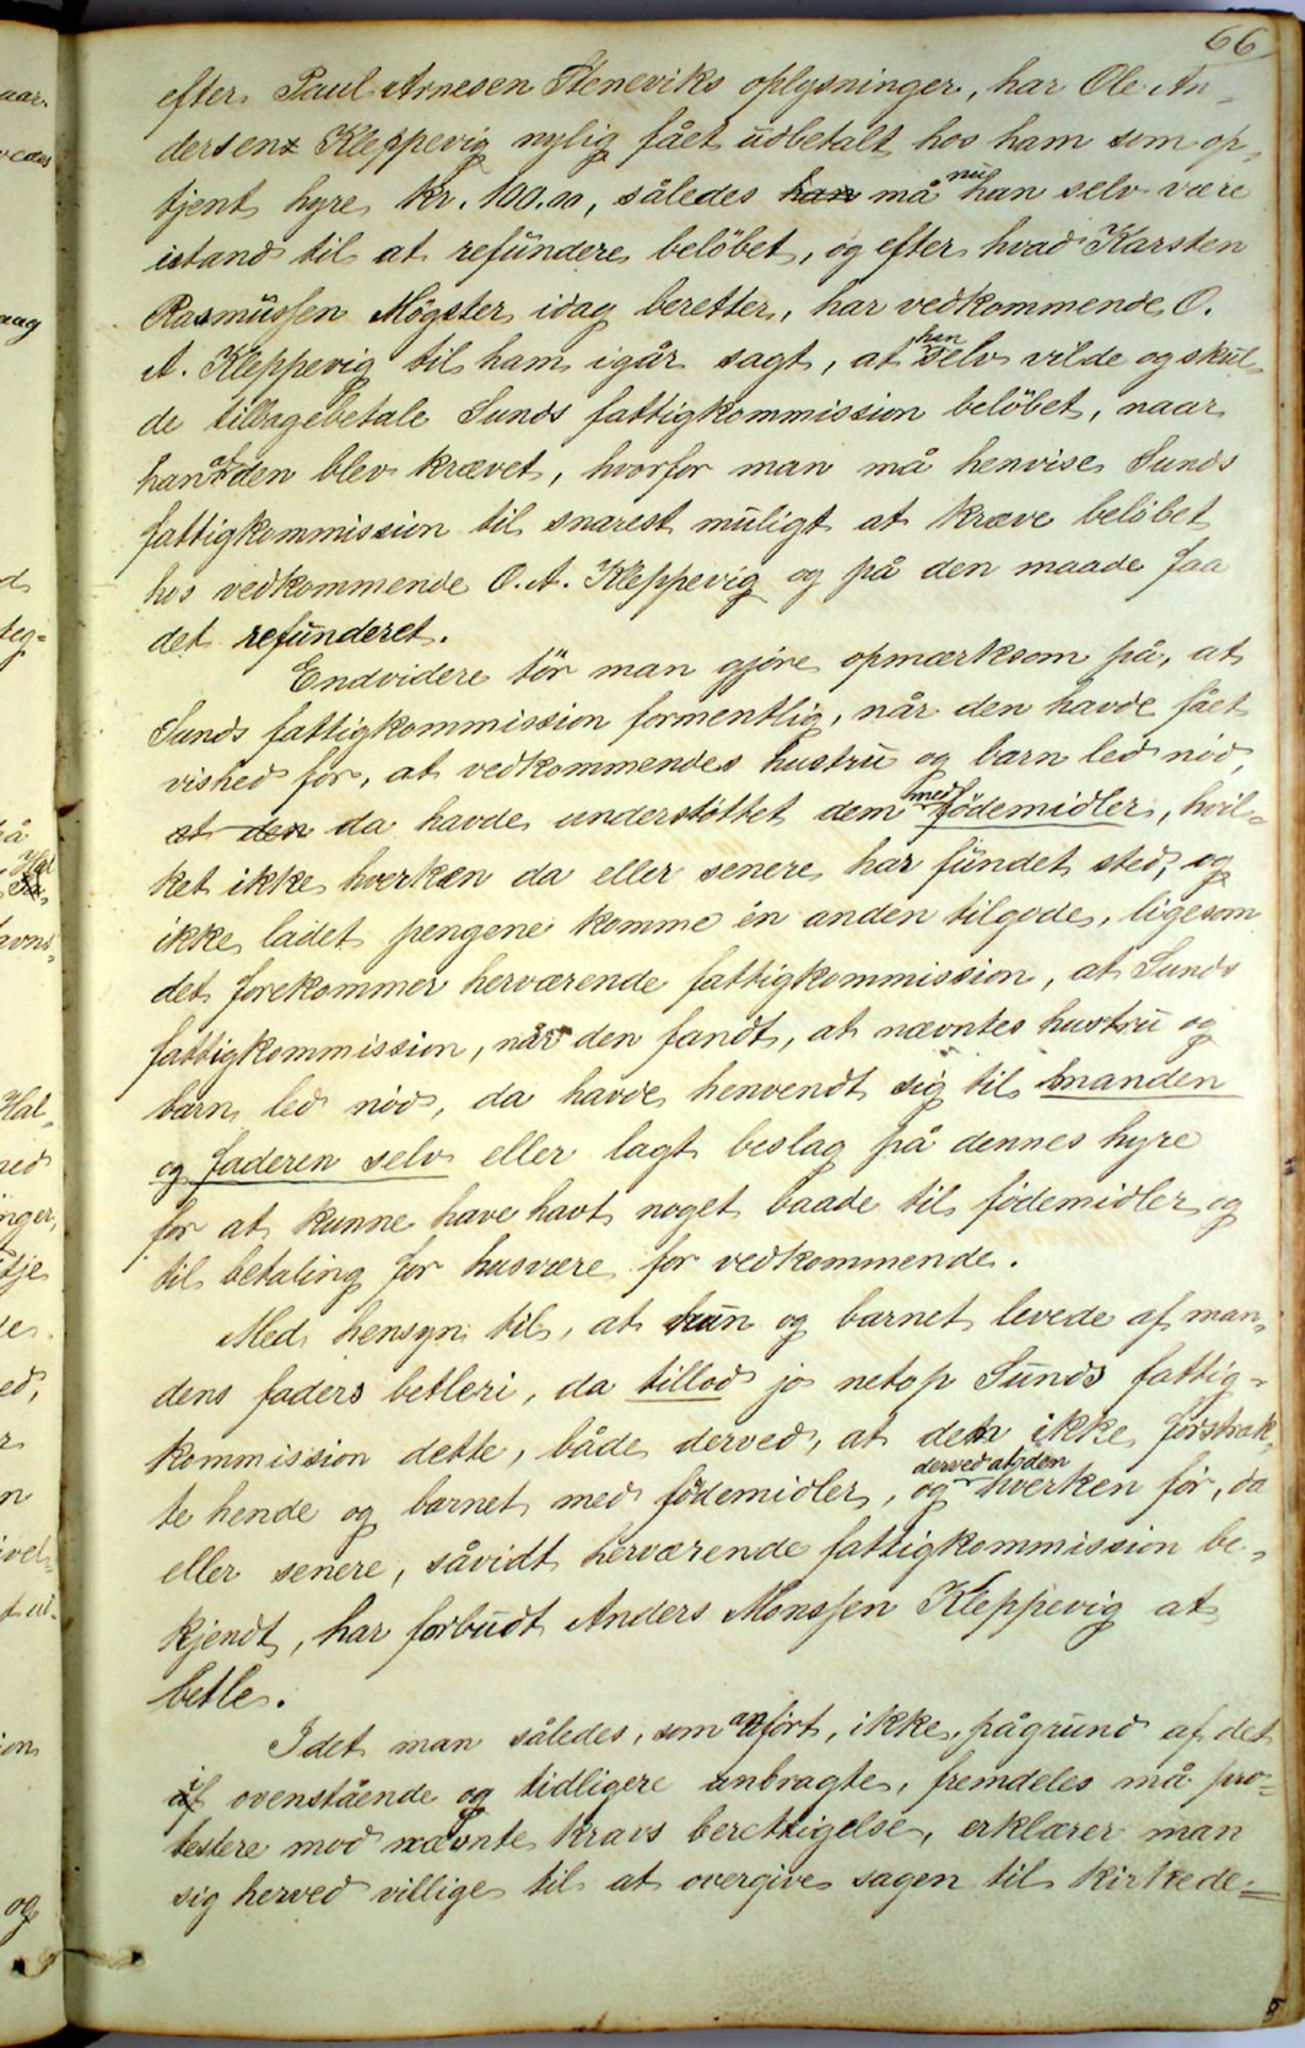 66
efter Paul Arnesen Steneviks oplysninger, har Ole An-
dersen Kleppevig nylig fået udbetalt hos ham som op-
tjent hyre kr. 100.00, således han må nu han selv være
istand til at refundere beløbet, og efter hvad Karsten
Rasmussen Møgster idag beretter, har vedkommende O.
A. Kleppevig til ham igår sagt, at han selv vilde og skul-
de tilbagebetale Sunds fattigkommission beløbet, naar
han af den blev krævet, hvorfor man må henvise Sunds
fattigkommission til snarest muligt at kræve beløbet
hos vedkommende O. A. Kleppevig og på den maade faa
det refunderet.
Endvidere tør man gjøre opmærksom på, at
Sunds fattigkommission formentlig, når den havde fået
vished for, at vedkommendes hustru og barn led nød,
at den da havde understøttet dem med fødemidler, hvil-
ket ikke hverken da eller senere har fundet sted, og
ikke ladet pengene komme én anden tilgode, ligesom
det forekommer herværende fattigkommission, at Sunds
fattigkommission, når den fandt, at nævntes hustru og
barn led nød, da havde henvendt sig til manden
og faderen selv eller lagt beslag på dennes hyre
for at kunne have havt noget baade til fødemidler og
til betaling for husvære for vedkommende.
Med hensyn til, at hun og barnet levede af man-
dens faders betleri, da tillod jo netop Sunds fattig-
kommission dette, både derved, at den ikke forstrak-
te hende og barnet med fødemidler, og derved at den hverken før, da
eller senere, såvidt herværende fattigkommission be-
kjendt, har forbudt Anders Monssen Kleppevig at
betle.
Idet man således, som anført, ikke på grund af det
i ovenstående og tidligere anbragte, fremdeles må pro-
testere mod nævnte kravs berettigelse, erklærer man
sig herved villige til at overgive sagen til kirkede-